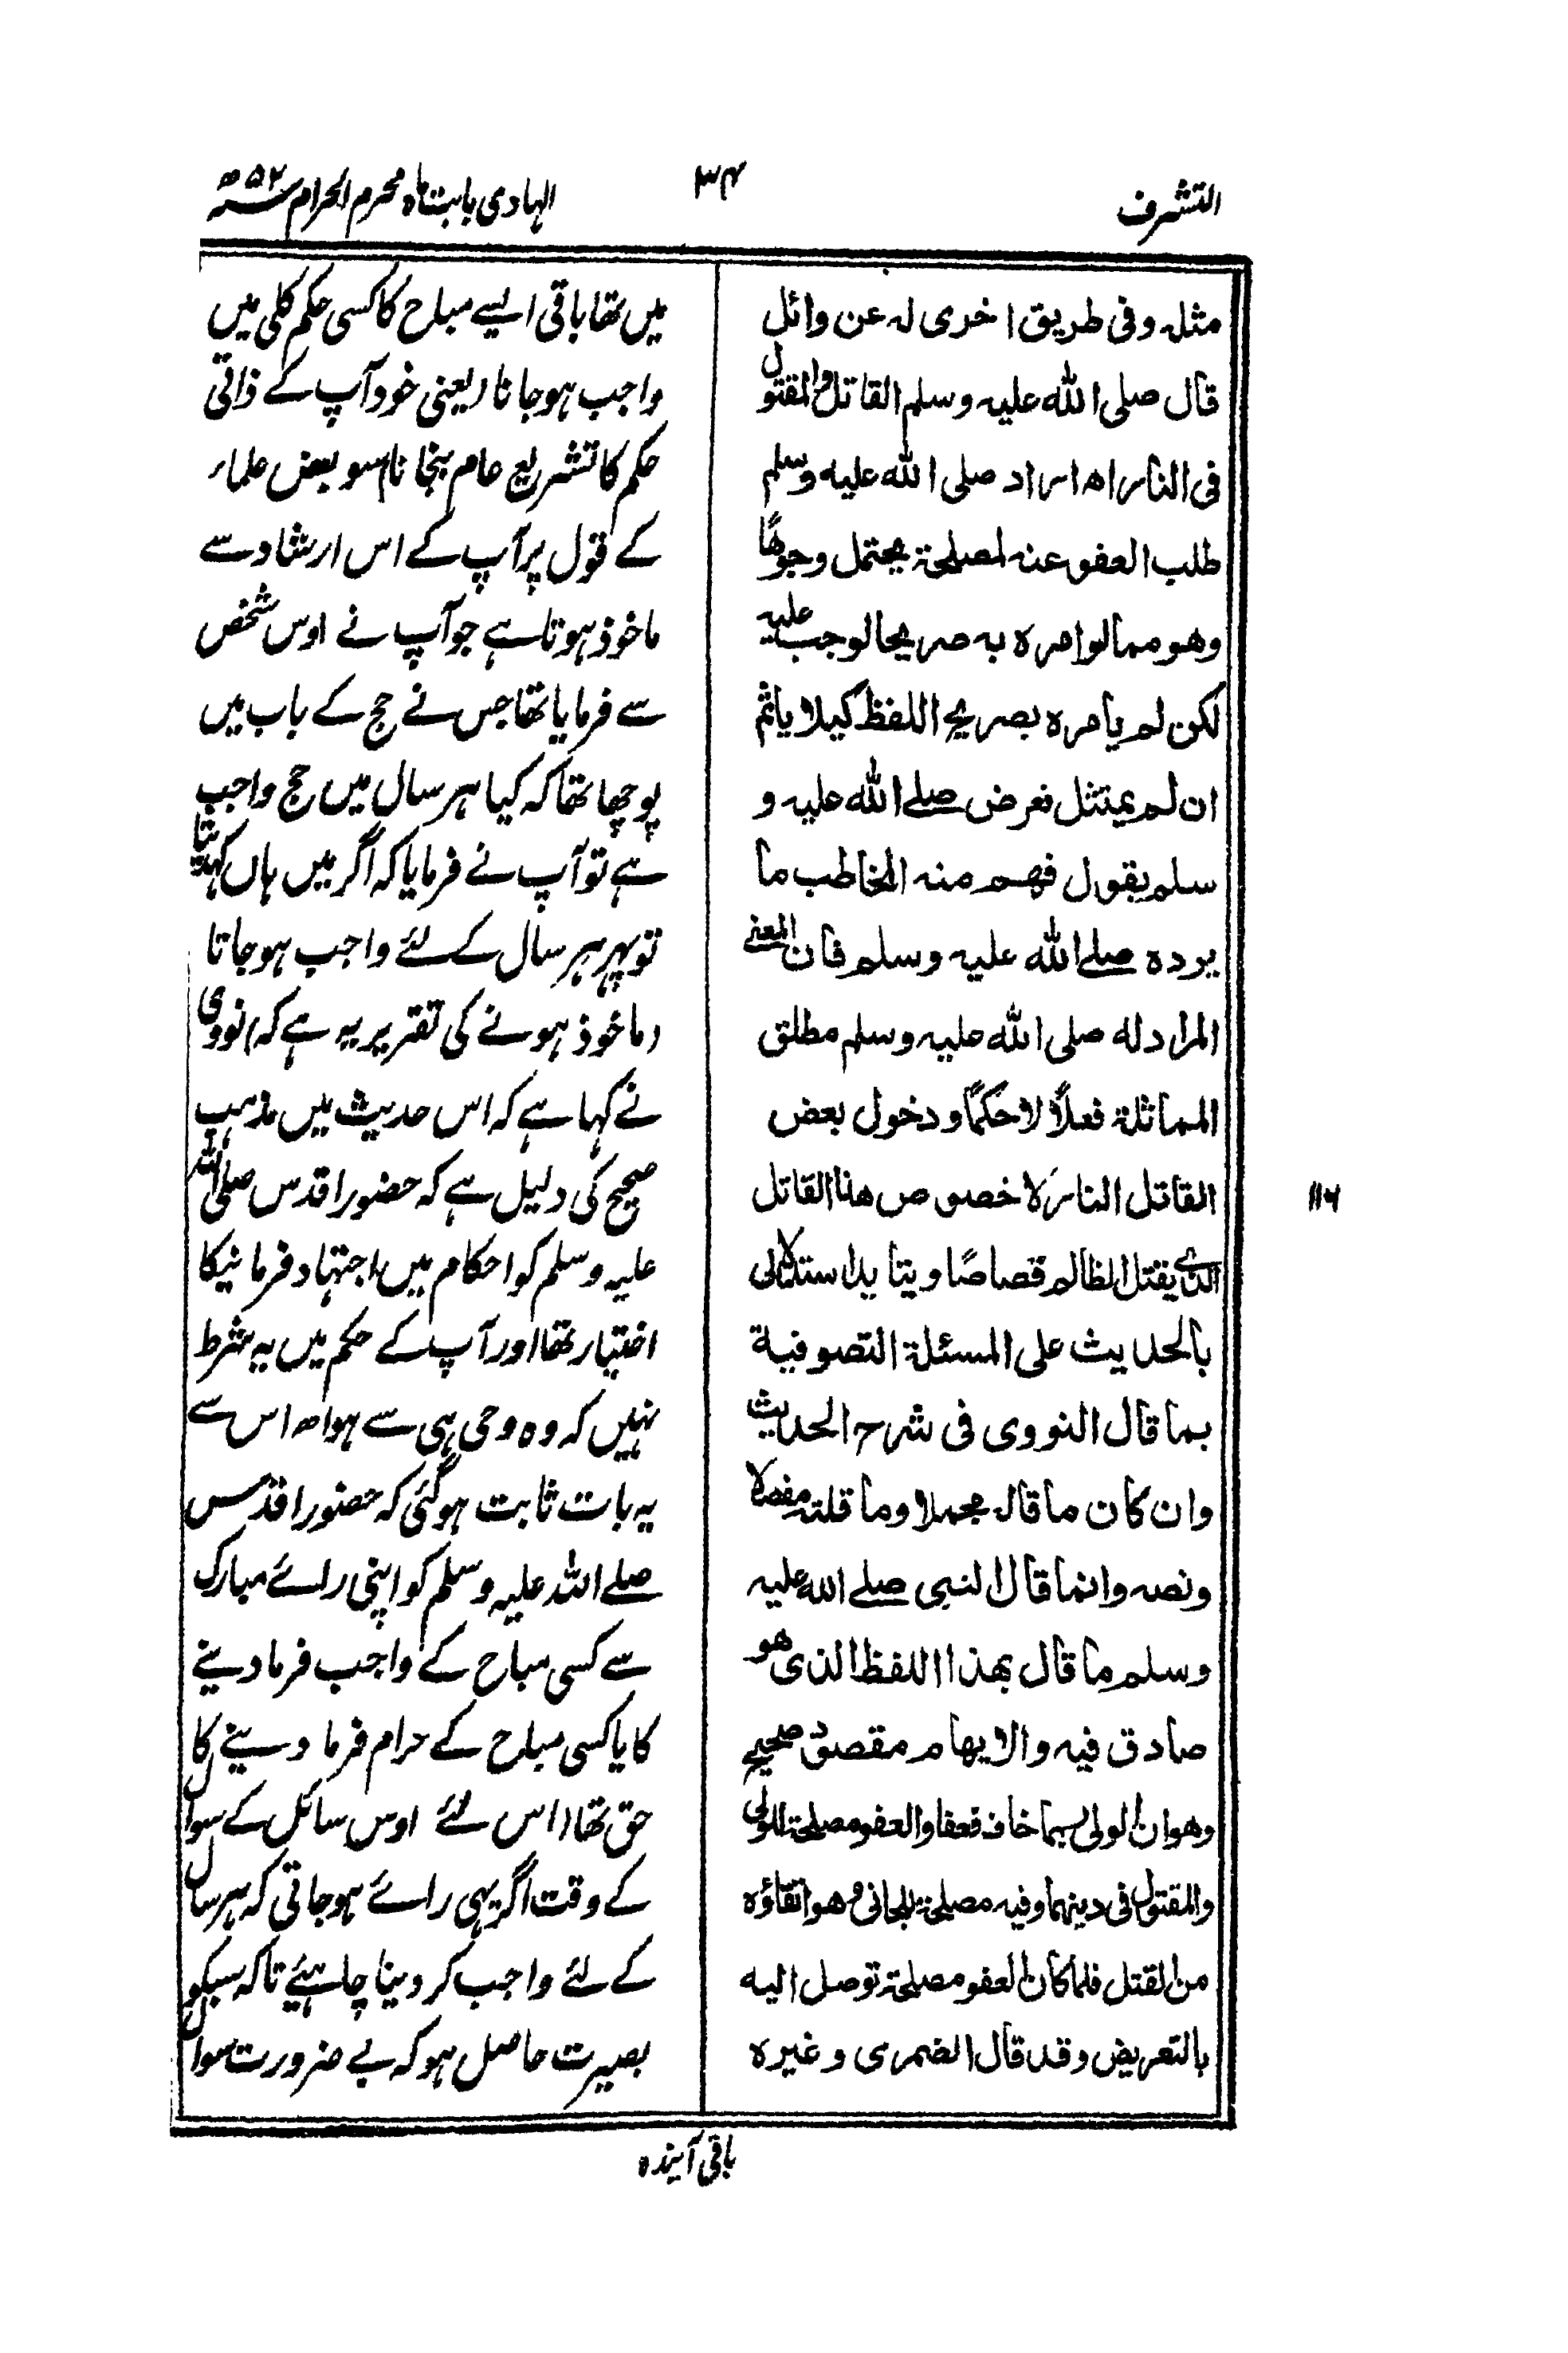 التشرف
۳۴
الہادی بابت ماہ محرم الحرام سنہ ۵۲ھ
مثلہ وفی طریق اخری لہ عن وائل
قال صلی اللہ علیہ وسلم القاتل والمقتول
فی النار اھ اراد صلی اللہ علیہ وسلم
طلب العفو عنہ لمصلحۃ یحتمل وجوھًا
وھو ممالو امرہ بہ صریحا لوجب علیہ
لکن لم یامرہ بصریح اللفظ کیلا یاثم
ان لم یمتثل فعرض صلے اللہ علیہ و
سلم بقول فھم منہ المخاطب ما
یردہ صلے اللہ علیہ وسلم فان المعنے
المراد لہ صلی اللہ علیہ وسلم مطلق
المماثلۃ فعلًا لا حکمًا و دخول بعض
القاتل النار لا خصوص ھذا القاتل
الذی یقتل الظالم قصاصًا ویتاید استدلالی
بالحدیث علی المسئلۃ التصوفیۃ
بما قال النووی فی شرح الحدیث
وان کان ما قالہ مجملا وما قلتہ مفصلا
ونصہ وانما قال النبی صلے اللہ علیہ
وسلم ما قال بھذا اللفظ الذی ھو
صادق فیہ والایھام مقصود صحیح
وھو ان الولی ربما خاف فعفا والعفو مصلحۃ للولی
والمقتول فی دینھما وفیہ مصلحۃ للجانی وھو انقاؤہ
من القتل فلما کان العفو مصلحۃ توصل الیہ
بالتعریض وقد قال الضمری وغیرہ
۱۱۶
میں تھا باقی ایسے مباح کا کسی حکم کلی میں
واجب ہوجانا (یعنی خود آپ کے ذاتی
حکم کا تشریع عام بنجانا) سو بعض علماء
کے قول پر آپ کے اس ارشاد سے
ماخوذ ہوتا ہے جو آپ نے اوس شخص
سے فرمایا تھا جس نے حج کے باب میں
پوچھا تھا کہ کیا ہر سال میں حج واجب
ہے تو آپ نے فرمایا کہ اگر میں ہاں کہدیتا
تو پہر ہر سال کے لئے واجب ہوجاتا
(ماخوذ ہونے کی تقریر یہ ہے کہ) نووی
نے کہا ہے کہ اس حدیث میں مذہب
صحیح کی دلیل ہے کہ حضور اقدس صلی اللہ
علیہ وسلم کو احکام میں اجتہاد فرمانیکا
اختیار تھا اور آپ کے حکم میں یہ شرط
نہیں کہ وہ وحی ہی سے ہو اھ اس سے
یہ بات ثابت ہوگئی کہ حضور اقدس
صلے اللہ علیہ وسلم کو اپنی رائے مبارک
سے کسی مباح کے واجب فرمادینے
کا یا کسی مباح کے حرام فرما دینے کا
حق تھا (اس لئے اوس سائل کے سوال
کے وقت اگر یہی رائے ہوجاتی کہ ہر سال
کے لئے واجب کر دینا چاہئیے تاکہ سبکو
بصیرت حاصل ہو کہ بے ضرورت سوال
باقی آیندہ